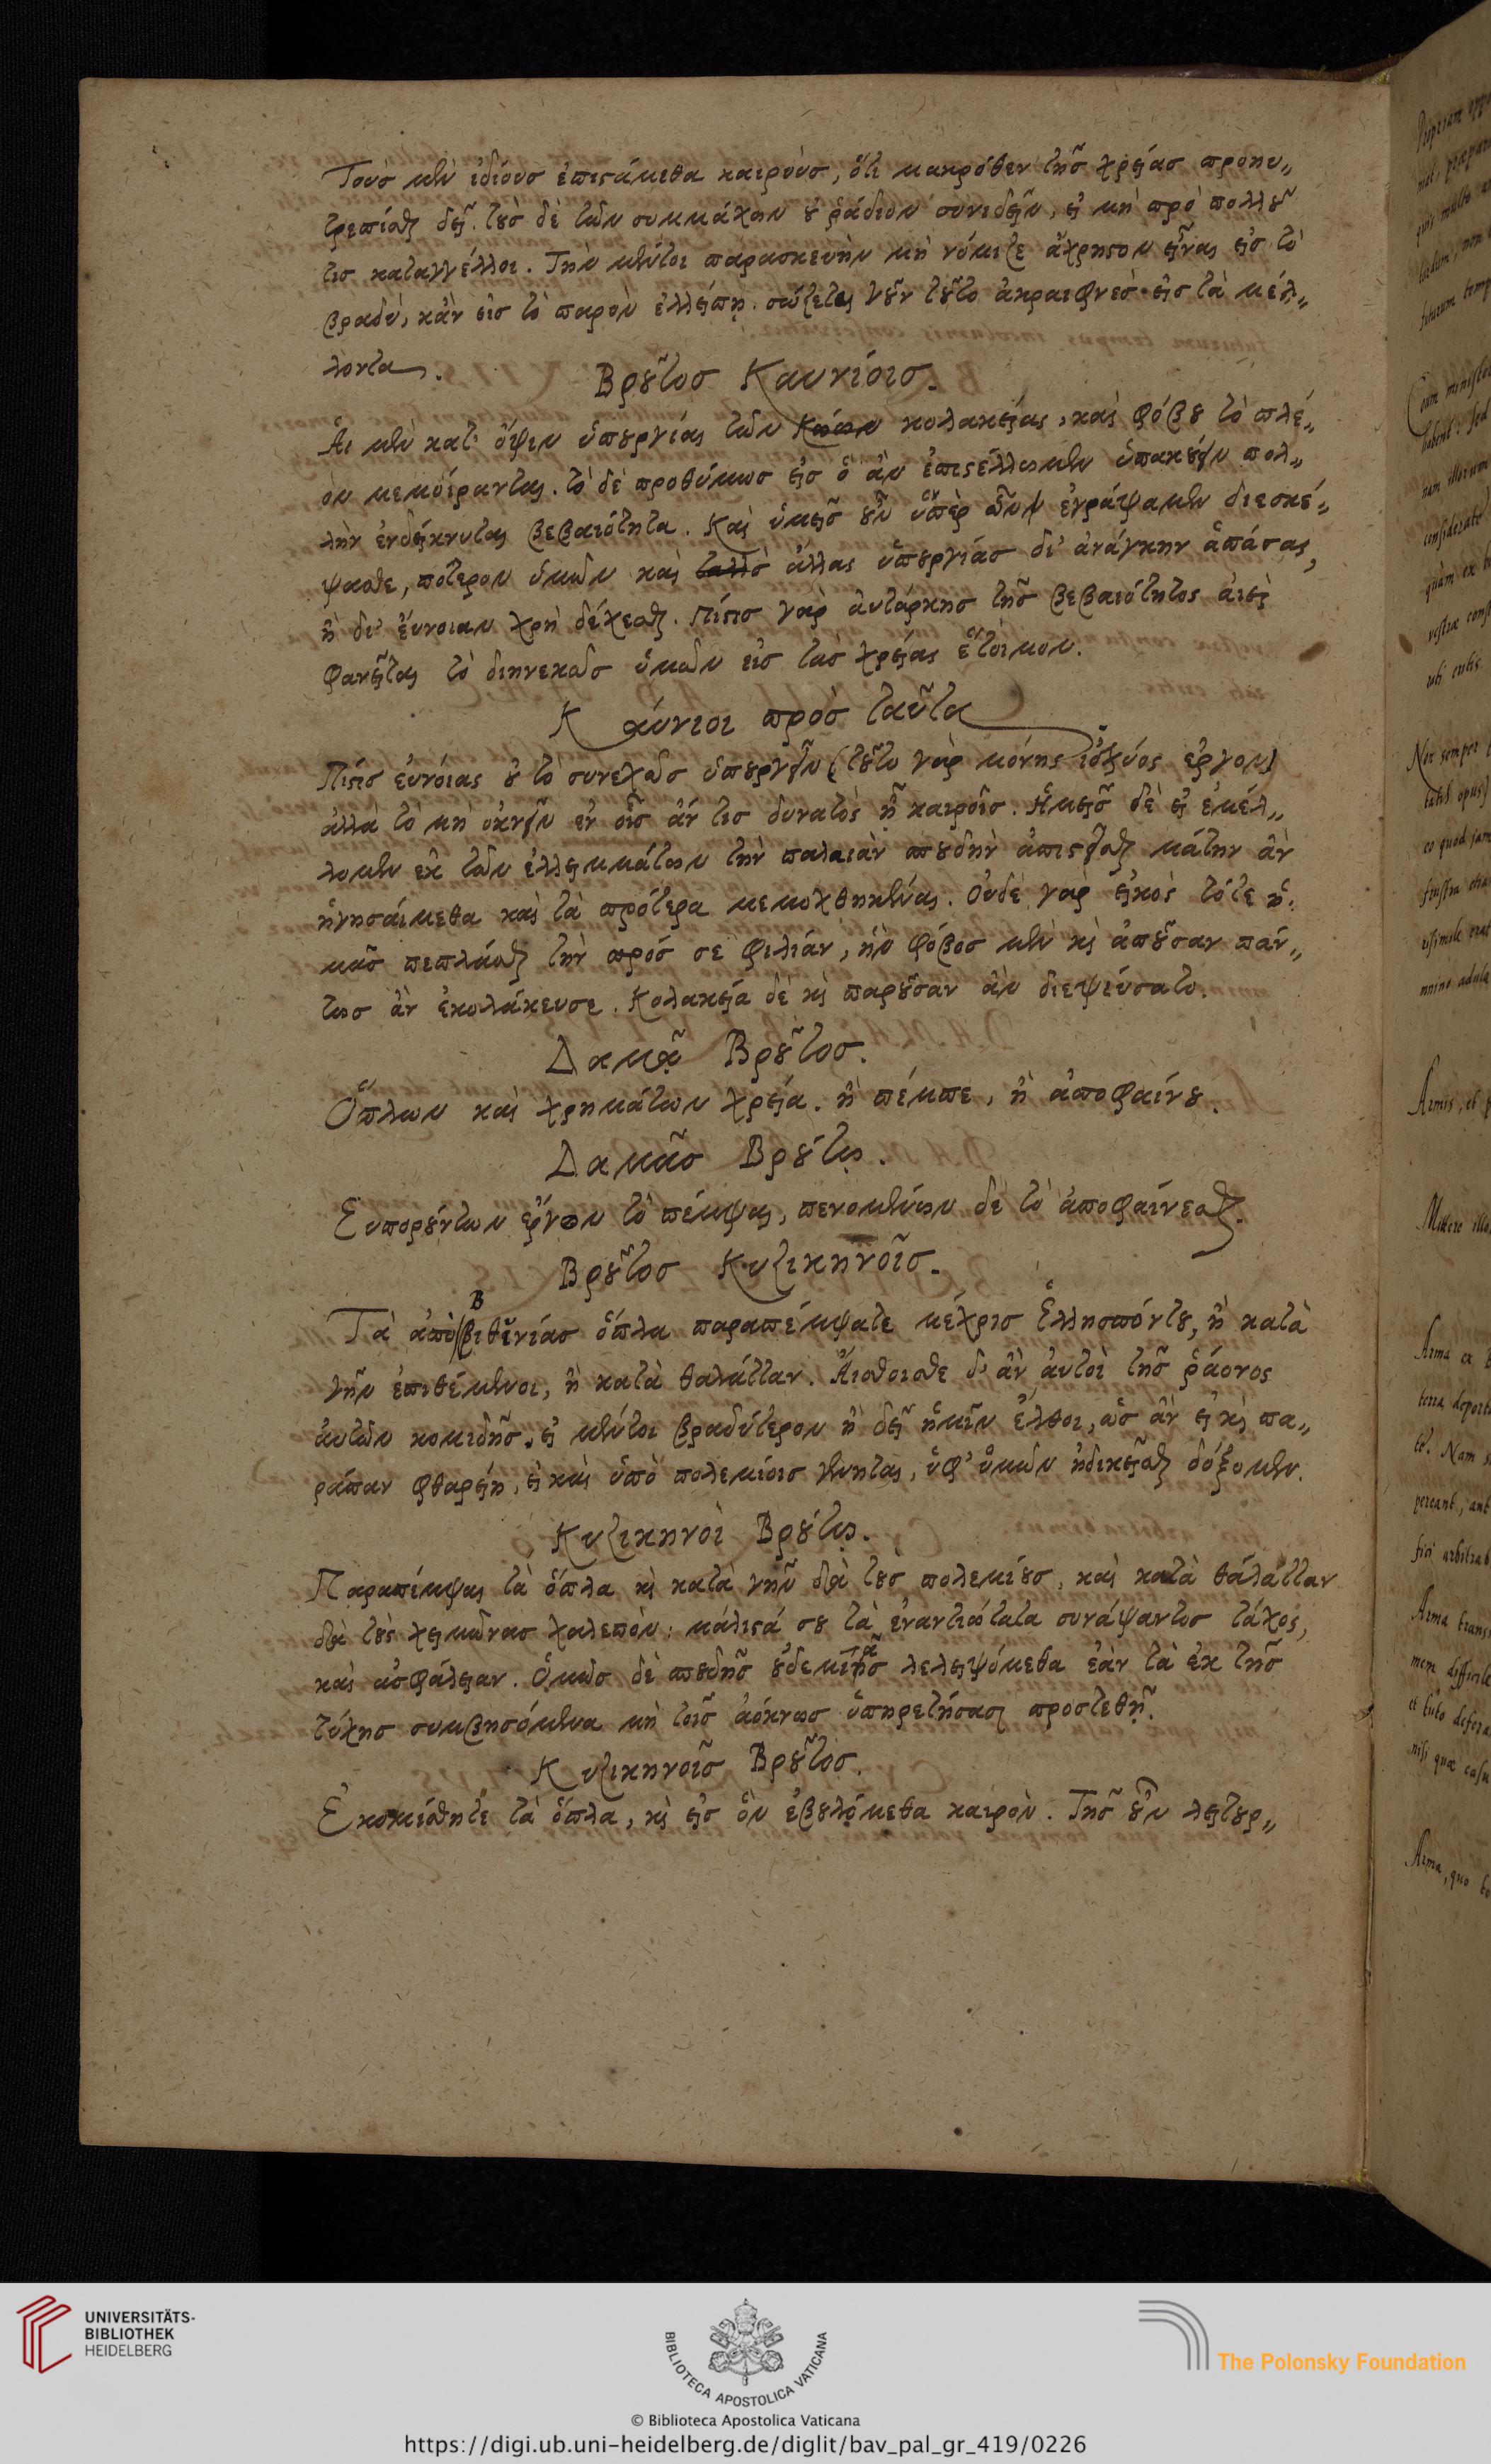 Τοὺσ μὲν ἰδίουσ ἐπιστάμεθα καιροὺσ, ὅτε μακρόθεν τῆσ χρείασ προηυ„
τρεπίσθαι δεῖ. τοὺσ δὲ τῶν συμμάχων οὐ ῥάδιον συνιδεῖν, εἰ μὴ πρὸ πολλοῦ
τισ καταγγέλλοι. Τὴν μέντοι παρασκευὴν μὴ νόμιζε ἄχρηστον εἶναι εἰσ τὸ
βραδὺ, κἂν εἰσ τὸ παρὸν ἐλλείπῃ. σώζεται γοῦν τοῦτο ἀκραιφνὲσ εἰσ τὰ μέλ„
λοντα.
Βροῦτοσ Καυνίοισ.
Αἱ μὲν κατ' ὄψιν ὑπουργίαι τῶν κολακείας, καὶ φόβου τὸ πλέ„
ον μεμοίρανται. τὸ δὲ προθύμωσ εἰσ ὃ ἂν ἐπιστέλλωμεν ὑπακούειν πολ„
λὴν ἐνδείκνυται βεβαιότητα. Καὶ ὑμεῖσ οὖν ὑπὲρ ὧν ἐγράψαμεν διεσκέ„
ψασθε, πότερον ὑμῶν καὶ ἄλλας ὑπουργίασ δι' ἀνάγκην ἁπάσας,
ἢ δι' ἔυνοιαν χρὴ δέχεσθαι. πίστισ γὰρ ἀυτάρκησ τῆσ βεβαιότητος ἀιεὶ
φανεῖται τὸ διηνεκῶσ ὑμῶν εἰσ τὰσ χρείας ἕτοιμον.
Καύνιοι πρὸσ ταῦτα
Πίστισ εὐνοίας οὐ τὸ συνεχῶσ ὑπουργεῖν (τοῦτο γὰρ μόνης ἰσχύος ἔργον)
ἀλλὰ τὸ μὴ ὀκνεῖν ἐν οἷσ ἄν τισ δυνατὸς ᾖ καιροῖσ. Ἡμεῖσ δὲ εἰ ἐμέλ„
λομεν ἐκ τῶν ἐλλειμμάτων τὴν παλαιὰν σπουδὴν ἀπιστεῖσθαι μάτην ἂν
ἡγησαίμεθα καὶ τὰ πρότερα μεμοχθημένας. Οὐδὲ γὰρ εἰκὸς τότε ἡ„
μᾶσ πεπλάσθαι τὴν πρόσ σε φιλίαν, ἣν φόβοσ μὲν καὶ ἀποῦσαν πάν„
τωσ ἂν ἐκολάκευσε. Κολακεία δὲ καὶ παροῦσαν ἂν διεψεύσατο.
Δαμᾷ Βροῦτοσ.
Ὅπλων καὶ χρημάτων χρεία. ἢ πέμπε, ἢ ἀποφαίνου.
Δαμᾶσ Βρούτῳ.
Ευπορούντων ἔργον τὸ πέμψαι, πενομένων δὲ τὸ ἀποφαίνεσθαι.
Βροῦτοσ Κυζικηνοῖσ.
Τὰ ἀπὸ Βιθυνίασ ὅπλα παραπέμψατε μέχρισ Ἑλλησπόντου, ἢ κατὰ
γῆν ἐπιθέμενοι, ἢ κατὰ θαλάτταν. Αἴσθοισθε δ' ἂν ἀυτοὶ τῆσ ῥάονος
ἀυτῶν κομιδῆσ. εἰ μέντοι βραδύτερον ἢ δεῖ ἡμῖν ἔλθοι, ὡσ ἂν εἰ καὶ πα„
ράπαν φθαρείη, εἰ καὶ ὑπὸ πολεμίοισ γένηται, ὑφ' ὑμῶν ἠδικεῖσθαι δόξομεν.
Κυζικηνοὶ Βρούτῳ.
Παραπέμψαι τὰ ὅπλα καὶ κατὰ γῆν διὰ τοὺσ πολεμίουσ, καὶ κατὰ θάλατταν
διὰ τοὺς χειμῶνασ χαλεπὸν: μάλιστά σου τὰ ἐναντιώτατα συνάψαντοσ τάχος,
καὶ ἀσφάλειαν. Ὅμωσ δὲ σπουδῆσ οὐδεμιᾶσ λελειψόμεθα ἐὰν τὰ ἐκ τῆσ
τύχησ συμβησόμενα μὴ τοῖσ ἀόκνωσ ὑπηρετήσασι προστεθῇ.
Κυζικηνοῖσ Βροῦτοσ.
Ἐκομίσθητε τὰ ὅπλα, καὶ εἰσ ὃν ἐβουλόμεθα καιρὸν. Τῆσ οὖν λειτουρ„
UNIVERSITÄTS-
BIBLIOTHEK
HEIDELBERG
BIBLIOTECA APOSTOLICA VATICANA
The Polonsky Foundation
© Biblioteca Apostolica Vaticana
https://digi.ub.uni-heidelberg.de/diglit/bav_pal_gr_419/0226